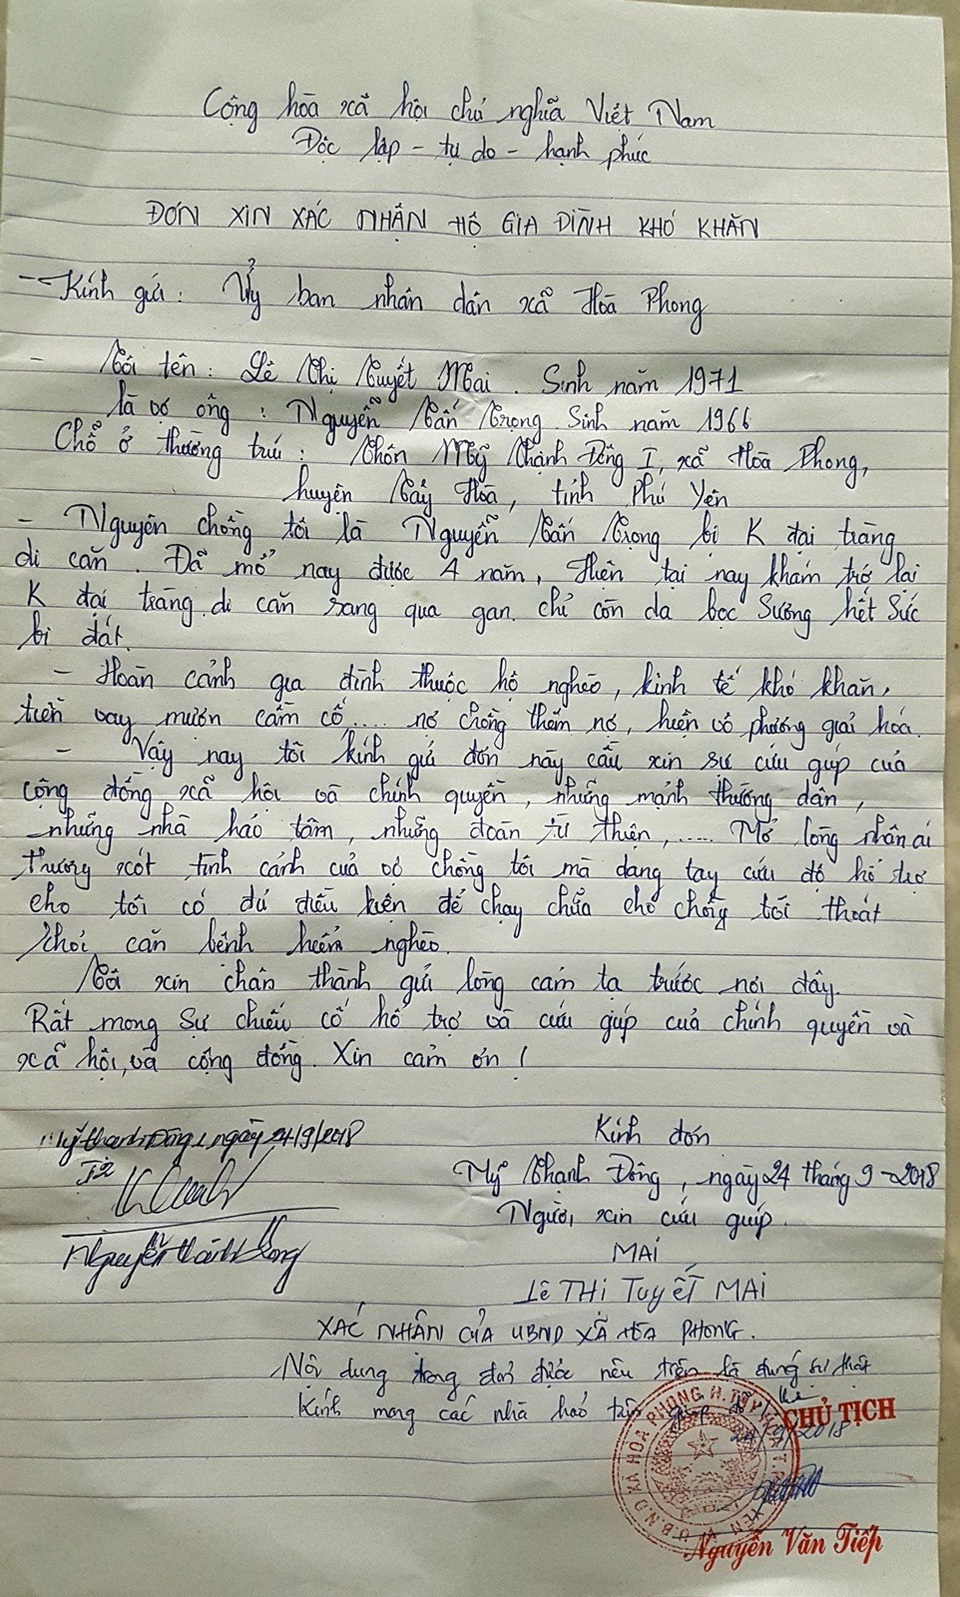 Cộng hòa xã hội chủ nghĩa Việt Nam
Độc lập - tự do - hạnh phúc
ĐƠN XIN XÁC NHẬN HỘ GIA ĐÌNH KHÓ KHĂN
- Kính gửi : Ủy ban nhân dân xã Hòa Phong
- Tôi tên : Lê Thị Tuyết Mai . Sinh năm 1971
là vợ ông : Nguyễn Tấn Trọng Sinh năm 1966
Chỗ ở thường trú : Thôn Mỹ Thạnh Đông I, xã Hòa Phong,
huyện Tây Hòa, tỉnh Phú Yên
- Nguyên chồng tôi là Nguyễn Tấn Trọng bị K đại tràng
di căn . Đã mổ nay được 4 năm, Hiện tại nay khám trở lại
K đại tràng di căn sang qua gan. chỉ còn da bọc Sương hết Sức
bi đát.
- Hoàn cảnh gia đình thuộc hộ nghèo, kinh tế khó khăn,
tiền vay mượn cầm cố .... nợ chồng thêm nợ, hiện vô phương giải hóa.
- Vậy nay tôi kính gửi đơn này cầu xin sự cứu giúp của
cộng đồng xã hội và chính quyền, những mạnh thường dân,
những nhà hảo tâm, những đoàn từ thiện, ..... Mở lòng nhân ái
thương xót tình cảnh của vợ chồng tôi mà dang tay cứu độ hổ trợ
cho tôi có đủ điều kiện để chạy chữa cho chồng tôi thoát
khỏi căn bệnh hiểm nghèo.
Tôi xin chân thành gửi lòng cảm tạ trước nơi đây.
Rất mong Sự chiếu cố hổ trợ và cứu giúp của chính quyền và
xã hội, và cộng đồng. Xin cảm ơn !
Mỹ thạnh Đông 1 ngày 24/9/2018
Kính đơn
Mỹ Thạnh Đông, ngày 24 tháng 9 - 2018
Người xin cứu giúp.
MAI
Nguyễn thành
LÊ THỊ TUYẾT MAI
XÁC NHẬN CỦA UBND XÃ HÒA PHONG.
Nội dung trong đơn được nêu trên là đúng sự thật
Kính mong các nhà hảo tâm giúp đỡ
CHỦ TỊCH
24/9/2018
U.B.N.D XÃ HÒA PHONG H. TÂY HÒA T.
Nguyễn Văn Tiếp